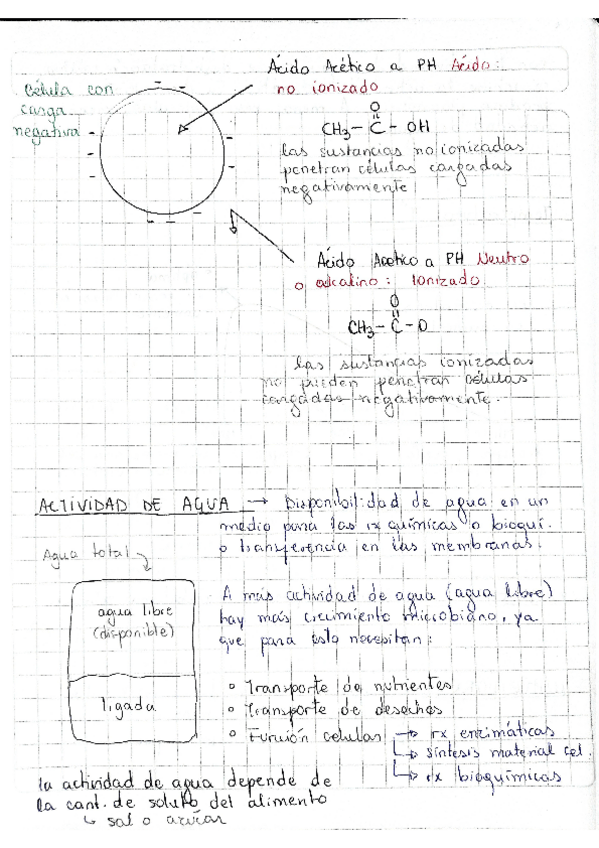 Ácido Acético a PH Ácido:
no ionizado
Célula con
carga
negativa
O
CH3 - C - OH
las sustancias no ionizadas
penetran células cargadas
negativamente
Ácido Acetico a PH Neutro
o alcalino: Ionizado
O
CH3 - C - O
las sustancias ionizadas
no pueden penetrar células
cargadas negativamente.
ACTIVIDAD DE AGUA → Disponibilidad de agua en un
medio para las rx químicas o bioquí.
o transferencia en las membranas.
Agua total
agua libre
(disponible)
ligada
A más actividad de agua (agua libre)
hay más crecimiento microbiano, ya
que para esto necesitan:
° Transporte de nutrientes
° Transporte de desechos
° Función celulas → rx enzimáticas
→ síntesis material cel.
→ rx bioquímicas
la actividad de agua depende de
la cant. de soluto del alimento
↳ sal o azúcar